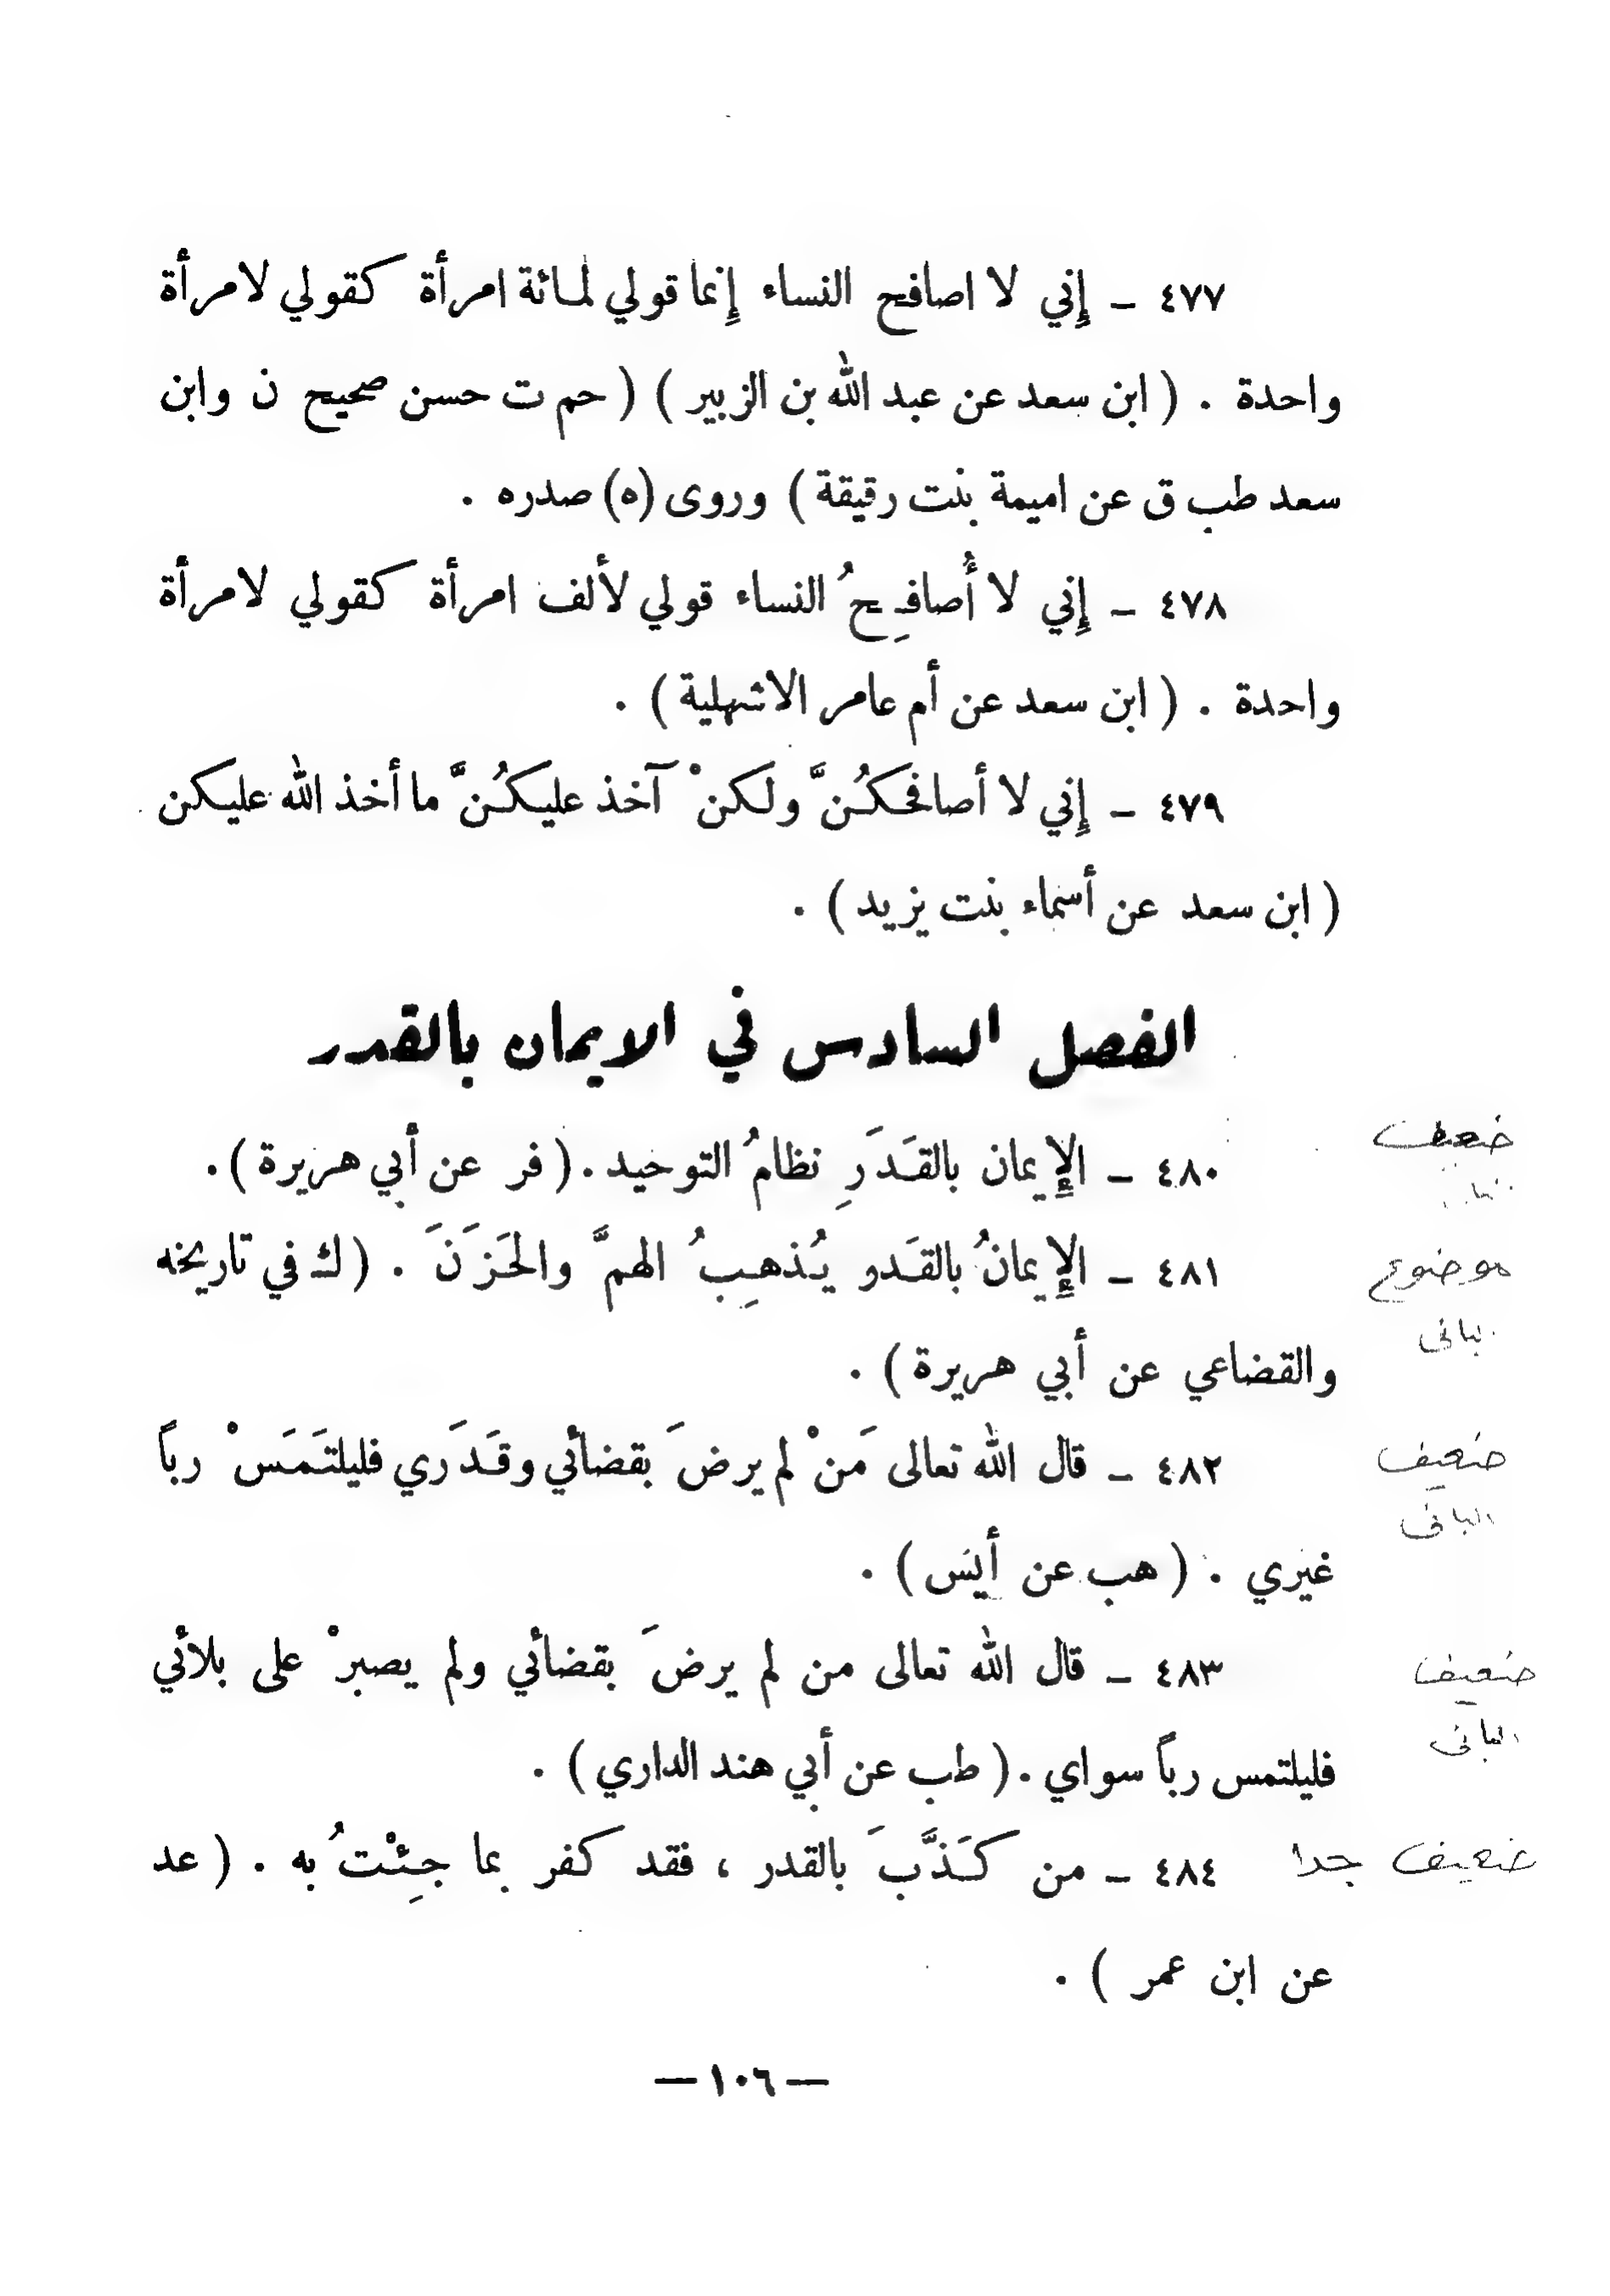 ٤٧٧ ـ إِني لا اصافح النساء إِنما قولي لمائة امرأة كقولي لامرأة
واحدة . ( ابن سعد عن عبد الله بن الزبير ) ( حم ت حسن صحيح ن وابن
سعد طب ق عن اميمة بنت رقيقة ) وروى (ه) صدره .
٤٧٨ ـ إِني لا أُصافِحُ النساء قولي لألف امرأة كقولي لامرأة
واحدة . ( ابن سعد عن أم عامر الاشهلية ) .
٤٧٩ ـ إِني لا أصافحكُنَّ ولكنْ آخذ عليكُنَّ ما أخذ الله عليكن
( ابن سعد عن أسماء بنت يزيد ) .
الفصل السادس في الايمان بالقدر
ضعيف
٤٨٠ ـ الإِيمان بالقَدَرِ نظامُ التوحيد . ( فر عن أبي هريرة ) .
موضوع
٤٨١ ـ الإِيمانُ بالقَدو يُذهِبُ الهمَّ والحَزَنَ . ( ك في تاريخه
والقضاعي عن أبي هريرة ) .
ضعيف
٤٨٢ ـ قال الله تعالى مَنْ لم يرضَ بقضائي وقَدَري فليلتَمَسْ رباً
البانى
غيري . ( هب عن أيس ) .
ضعيف
٤٨٣ ـ قال الله تعالى من لم يرضَ بقضائي ولم يصبرْ على بلائي
البانى
فليلتمس رباً سواي . ( طب عن أبي هند الداري ) .
ضعيف جدا
٤٨٤ ـ من كَذَّبَ بالقدر ، فقد كفر بما جِئْتُ به . ( عد
عن ابن عمر ) .
— ١٠٦ —